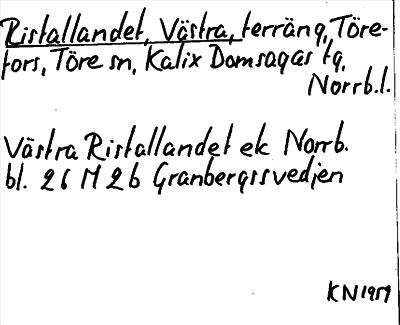 Ristallandet, Västra, terräng, Töre-
fors, Töre sn, Kalix Domsagas tg,
Norrb.l.
Västra Ristallandet ek Norrb.
bl. 26 M 2b Granbergssvedjen
KN 1959